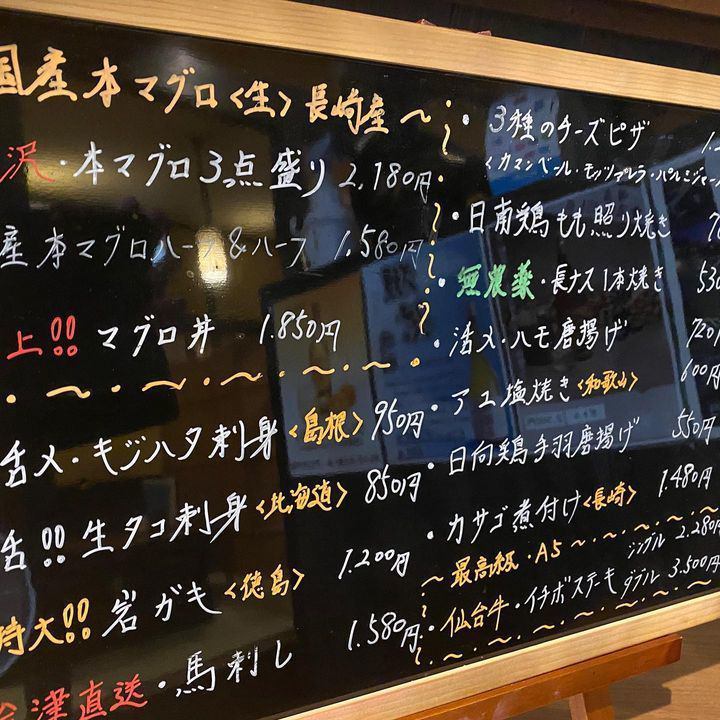 国産本マグロ〈生〉長崎産～
沢・本マグロ3つ点盛り 2.180円
産本マグロハーフ&ハーフ 1.580円
上!! マグロ丼 1.850円
活〆・キジハタ刺身〈島根〉950円
活!! 生タコ刺身〈北海道〉850円
特大!! 岩ガキ〈徳島〉1.200円
会津直送・馬刺し 1.580円
・3種のチーズピザ
〈カマンベール・モッツァレラ・パルミジャーノ
・日南鶏もも照り焼き
・無農薬・長ナス1本焼き 530
・活〆・ハモ唐揚げ 720円
・アユ塩焼き〈和歌山〉600円
・日向鶏手羽唐揚げ 550円
・カサゴ煮付け〈長崎〉1.480円
～最高級・A5～
シングル 2.280円
仙台牛・イチボステーキ ダブル 3.500円